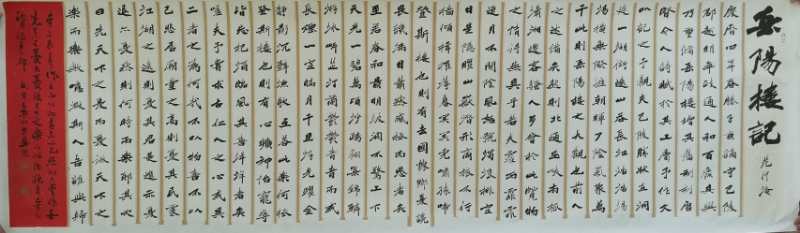 岳陽樓記
范仲淹
慶曆四年春滕子京謫守巴陵
郡越明年政通人和百廢具興
乃重修岳陽樓增其舊制刻唐
賢今人詩賦於其上屬予作文
以記之予觀夫巴陵勝狀在洞
庭一湖銜遠山吞長江浩浩湯
湯橫無際涯朝暉夕陰氣象萬
千此則岳陽樓之大觀也前人
之述備矣然則北通巫峽南極
瀟湘遷客騷人多會於此覽物
之情得無異乎若夫霪雨霏霏
連月不開陰風怒號濁浪排空
日星隱曜山岳潛形商旅不行
檣傾楫摧薄暮冥冥虎嘯猿啼
登斯樓也則有去國懷鄉憂讒
畏譏滿目蕭然感極而悲者矣
至若春和景明波瀾不驚上下
天光一碧萬頃沙鷗翔集錦鱗
游泳岸芷汀蘭郁郁青青而或
長煙一空皓月千里浮光躍金
靜影沉璧漁歌互答此樂何極
登斯樓也則有心曠神怡寵辱
皆忘把酒臨風其喜洋洋者矣
嗟夫予嘗求古仁人之心或異
二者之為何哉不以物喜不以
己悲居廟堂之高則憂其民處
江湖之遠則憂其君是進亦憂
退亦憂然則何時而樂耶其必
曰先天下之憂而憂後天下之
樂而樂歟噫微斯人吾誰與歸